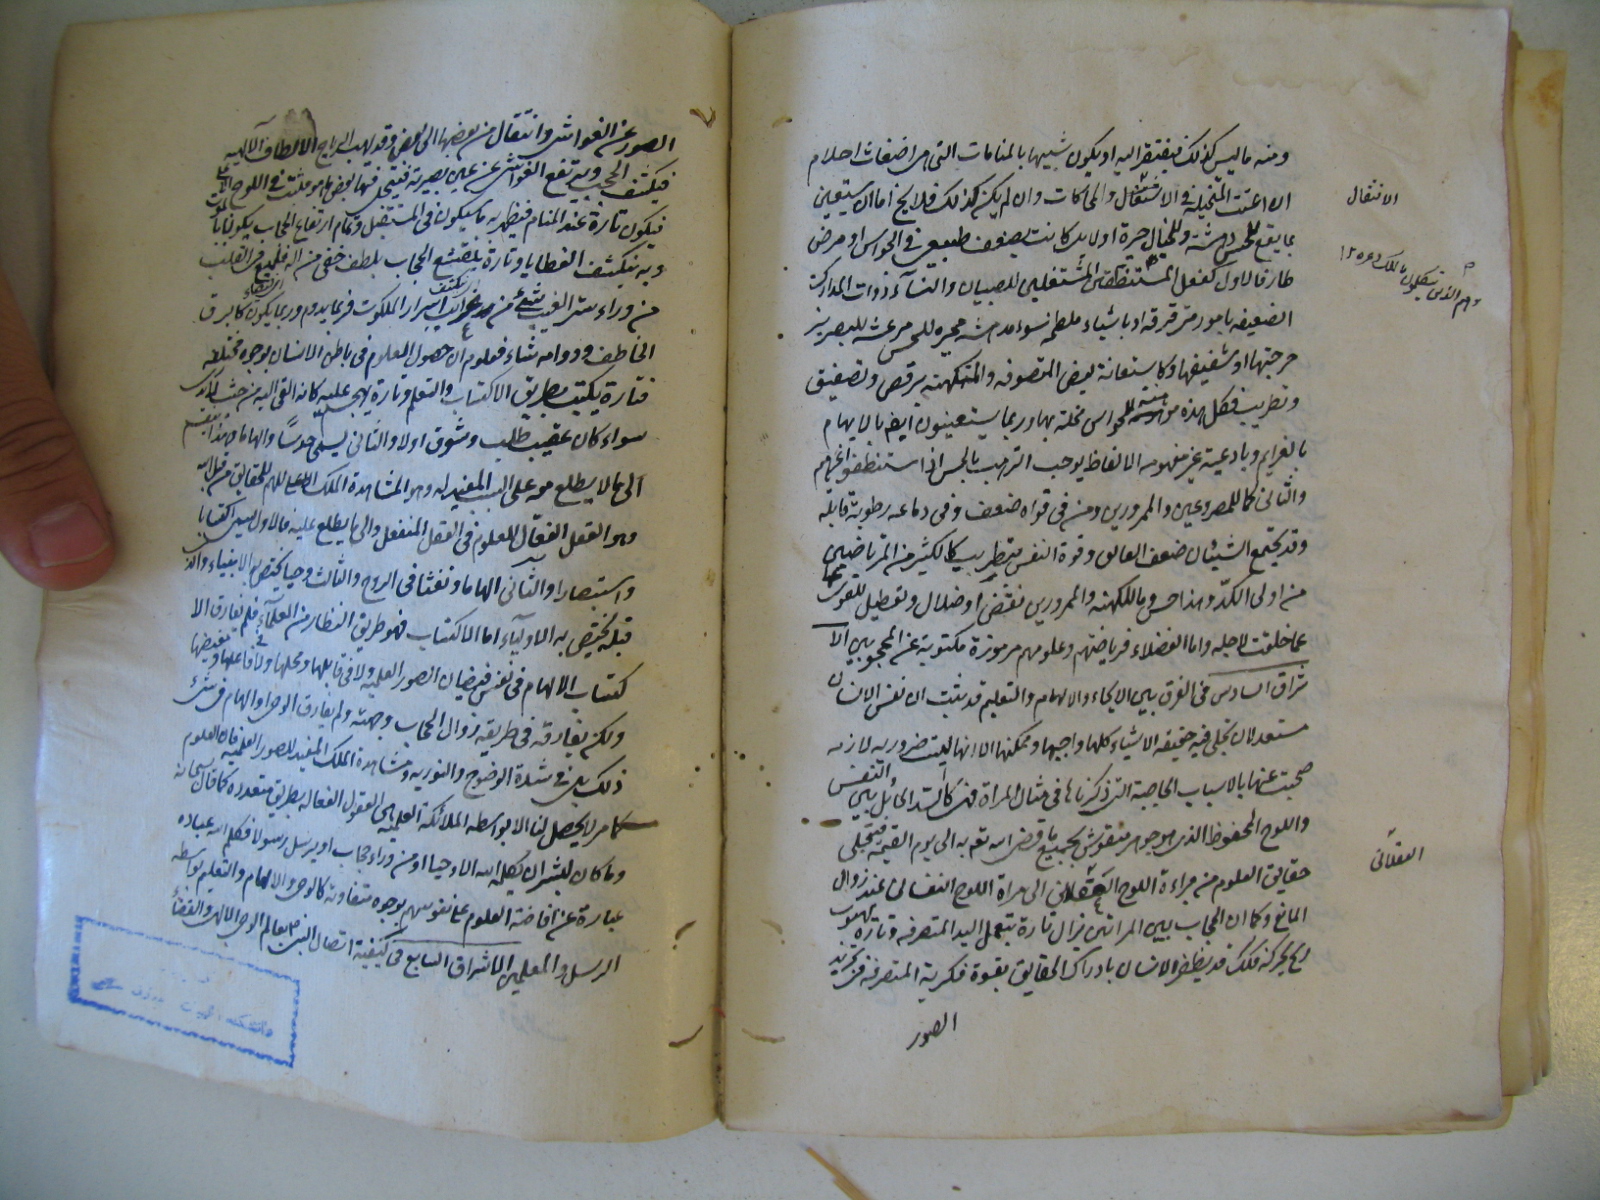 ومنه ما ليس كذلك فيفتقر اليه او يكون شبيها بالمنامات التى هى اضغاث احلام
ان امعنت المتخيلة فى الانتقال والمحاكات وان لم يكن كذلك فلا يخ اما ان يستعين
الانتقال
بما يقع للحس دهشة وللخيال حيرة اولا بل كانت لضعف طبيعى فى الحواس او مرض
طار فالاول كفعل المستنطقين المشتغلين للصبيان والنساء ذوات المدارك
الضعيفه بامور مترقرقه او باشياء ملطخه سود مدهشة محيره للحس مرعشة للبصر
برجرجتها او شفيفها وكاستعانة بعض المتصوفه والمتكهنه برقص وتصفيق
وتطريب فكل هذه موهشه للحواس مخلة بها وربما يستعينون ايضا بالايهام
بالعزايم وبادعية غير مفهومه الالفاظ يوجب الترهيب بالجن اذا استنطقوا غيرهم
والثانى كما للمصروعين والممرورين ومن فى قواه ضعف وفى دماغه رطوبة قابلة
وقد يجتمع الشيئان ضعف العايق وقوة النفس بتطريب كما لكثير من المرتاضين
من اولى الكد وهذا حسن وما للكهنة والممرورين نقص او ضلال وتعطيل للقوى
عما خلقت لاجله واما الفضلاء فرياضتهم وعلومهم مرموزة مكتوبة عن المحجوبين الا
شراق السادس فى الفرق بين الايحاء والالهام والتعليم قد ثبت ان نفس الانسان
مستعد لان تجلى فيه حقيقه الاشياء كلها واجبها وممكنها الا انها ليست ضروريه لازمه
حجبت عنها بالاسباب الخارجية التى ذكرناها فى مثال المراة فهى كالسد الحائل بين النفس
واللوح المحفوظ الذى هو جوهر منقوش بجميع ما قضى الله تعه به الى يوم القيمه فيتجلى
حقايق العلوم من مراءة اللوح العقلانى الى مراة اللوح النفسانى عند زوال
العقلانى
المانع وكما ان الحجاب بين المراتين يزال تارة بتعمل اليد المتصرفه وتارة بهبوب
ريح يحركه فكك قد يظفر الانسان بادراك الحقايق بقوة فكرية المتصرفة فى تجريد
الصور
الصور عن الغواشى وانتقال من بعضها الى بعض وقد يهب الرياح الالطاف الالهيه
فيكشف الحجب ويرتفع الغواشى عن عين بصيرته فيتجلى فيها بعض ما هو مثبت فى اللوح الاعلى
فيكون تارة عند المنام فيظهر به ما سيكون فى المستقبل وتمام ارتفاع الحجاب يكون بالموت
وبه ينكشف الغطاء وتارة ينقشع الحجاب بلطف خفى من الله فيلمع فى القلب
من وراء ستر الغيب شئ من غرائب اسرار الملكوت فربما يدوم وربما يكون كالبرق
الخاطف ودوامه شاء فعلم ان حصول العلوم فى باطن الانسان بوجوه مختلفة
فتارة يكتسب بطريق الاكتساب والتعلم وتارة يهجم عليه كانه القى اليه من حيث لا يدرى
سواء كان عقيب طلب وشوق اولا والثانى يسمى حدسا والهاما وهذا ينقسم
الى ما لا يطلع معه على السبب المفيد له وهو المشاهدة الملك الملهم للحقايق من قبل الله
وهو العقل الفعال للعلوم فى العقل المنفعل والى ما يطلع عليه فالاول يسمى اكتسابا
واستبصارا والثانى الهاما ونفثا فى الروع والثالث وحيا يختص به الانبياء والذى
قبله يختص به الاولياء اما الاكتساب فهو طريق النظار من العلماء فلم يفارق الا
كتساب الالهام فى نفس فيضان الصور العلميه ولا فى قابلها ومحلها ولا فى فاعلها ومفيضها
ولكن يفارقه فى طريقه زوال الحجاب وجهته ولم يفارق الوحى والهام فى شئ
ذلك بل فى شدة الوضوح والنوريه ومشاهدة الملك المفيد للصور العلميه فان العلوم
كما مر لا يحصل لنا الا بواسطه الملائكة العلميه وهى العقول الفعاله بطريق متعدده كما قال سبحانه
وما كان لبشر ان يكلمه الله الا وحيا او من وراء حجاب او يرسل رسولا فكلم الله عباده
عبارة عن افاضة العلوم على نفوسهم بوجوه متفاوته كالوحى والالهام والتعليم بواسطه
الرسل والمعلمين الاشراق السابع فى كيفية اتصال النبى ص بعالم الوحى الالهى والقضاء